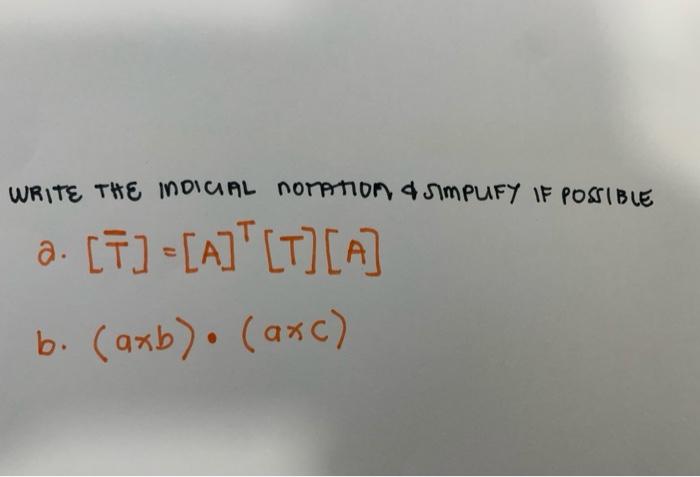 WRITE THE INDICIAL NOTATION & SIMPLIFY IF POSSIBLE
a. [T̅] = [A]ᵀ [T][A]
b. (a×b) • (a×c)